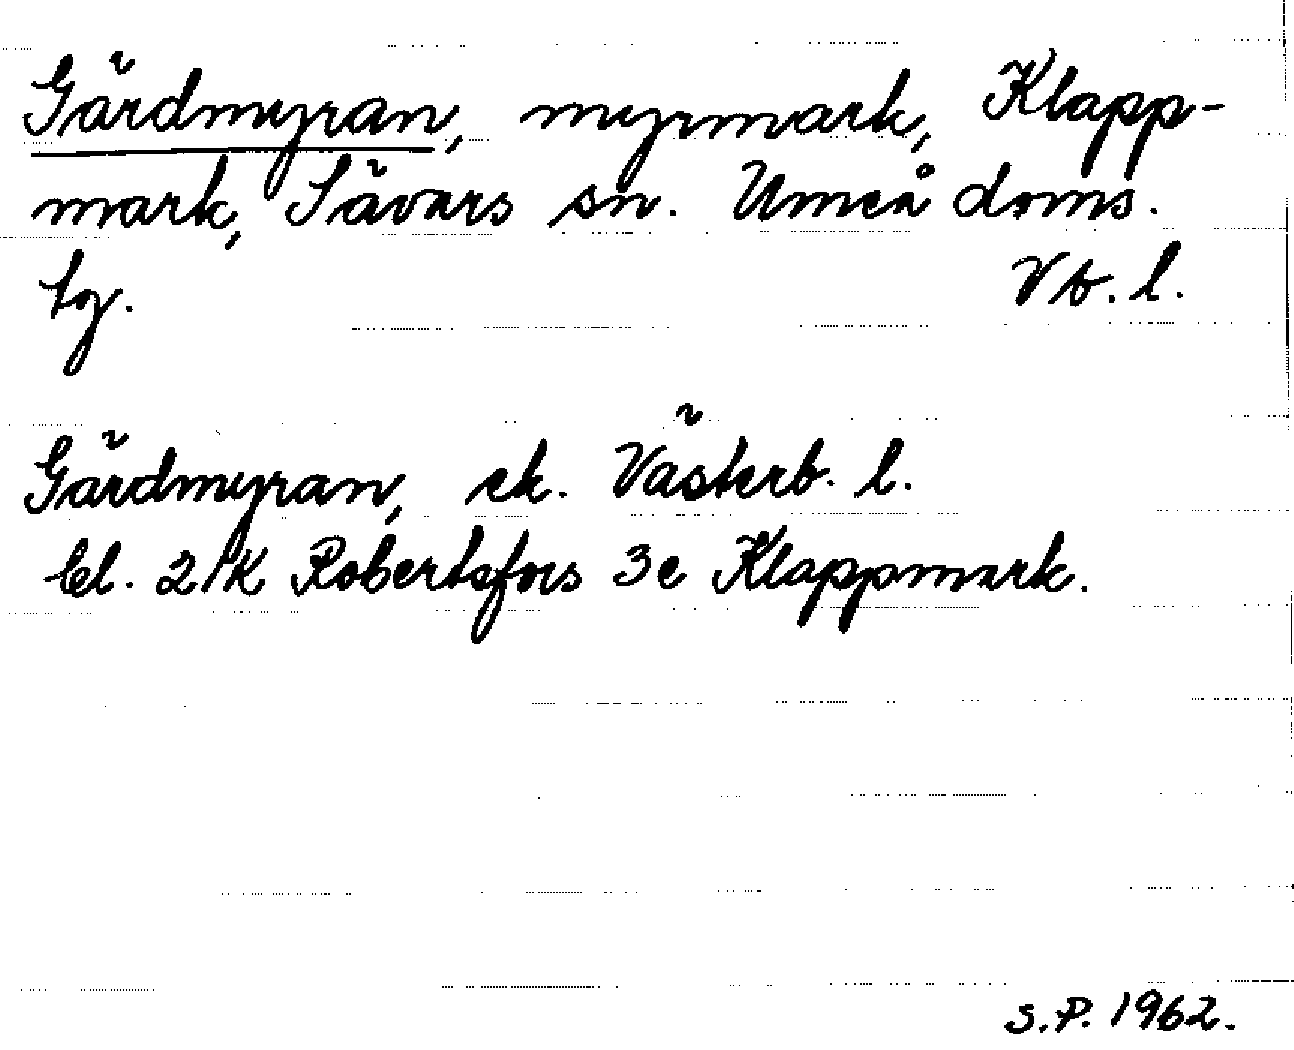 Gärdmyran, myrmark, Klapp-
mark, Sävars sn. Umeå doms.
lg. Vb. l.
Gärdmyran, ek. Västerb. l.
bl. 21K Robertsfors 3e Klappmark.
S.P. 1962.